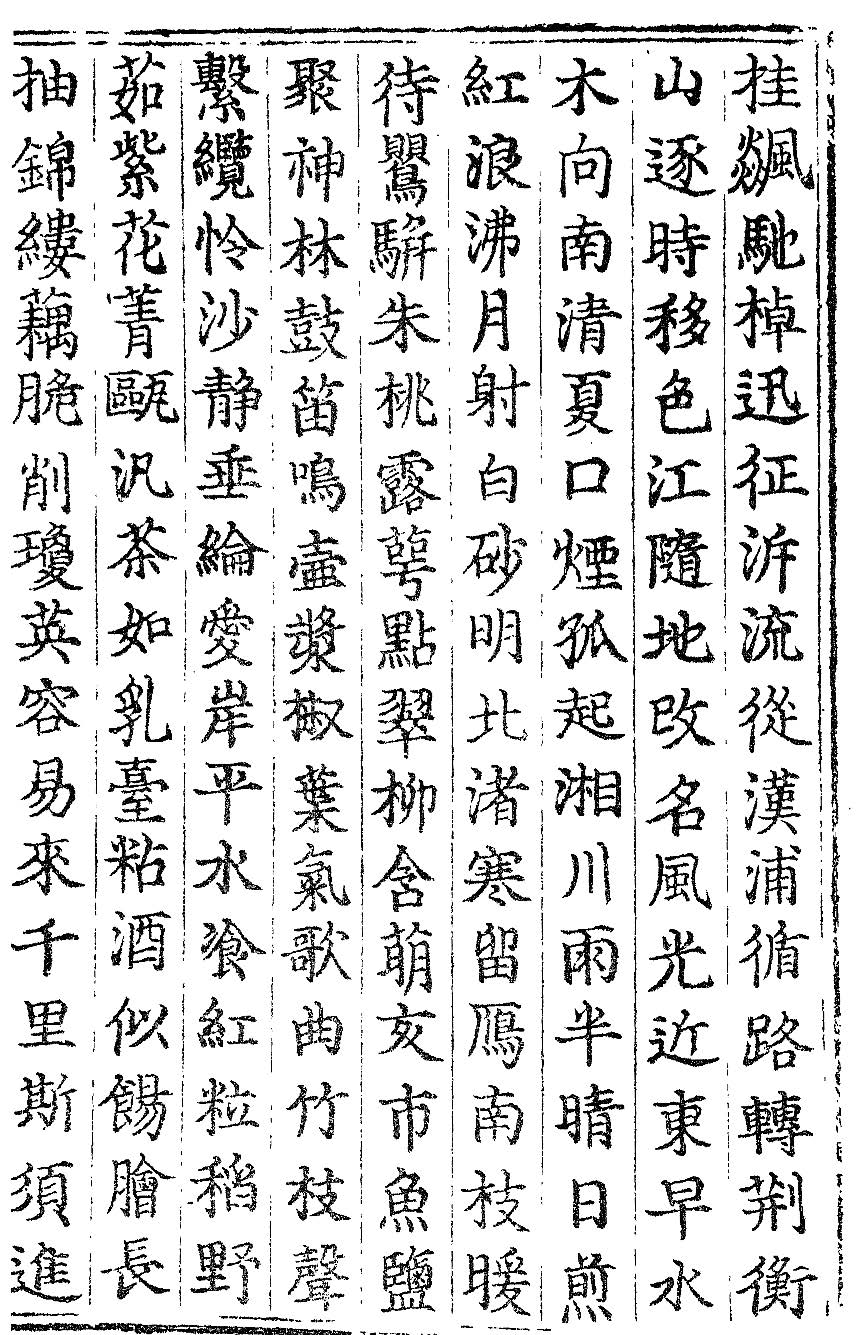 桂飇馳棹迅征泝流從漢浦循路轉荆衡
山逐時移色江隨地改名風光近東早水
木向南清夏口煙孤起湘川雨半晴日煎
紅浪沸月射白砂明北渚寒留鴈南枝暖
待鸎駢朱桃露萼點翠柳含萌亥市魚鹽
聚神林鼓笛鳴壷漿椒葉氣歌曲竹枝聲
繫纜怜沙静垂綸愛岸平水飡紅粒稻野
茹紫花菁甌汎茶如乳臺粘酒似餳膾長
抽錦縷藕脆削瓊英容易來千里斯須進